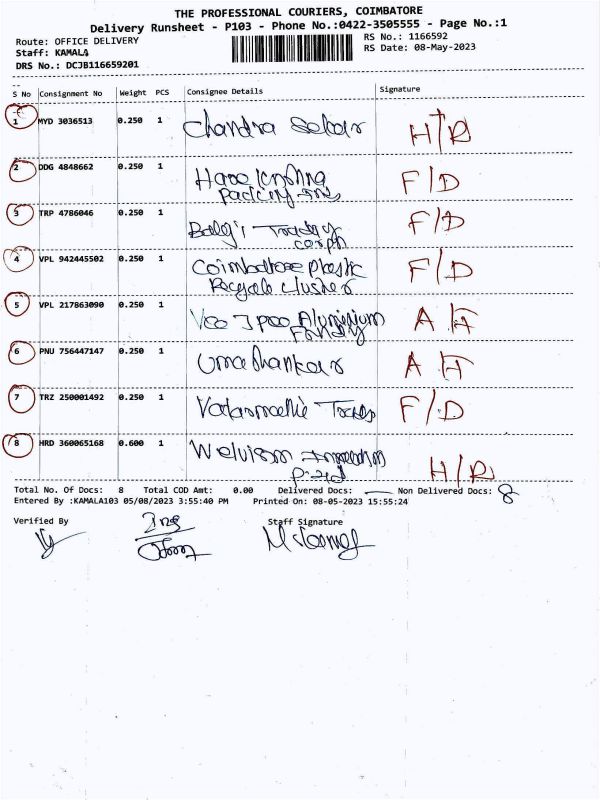 THE PROFESSIONAL COURIERS, COIMBATORE
Delivery Runsheet - P103 - Phone No.:0422-3505555 - Page No.:1
Route: OFFICE DELIVERY
Staff: KAMALA
DRS No.: DCJB116659201
RS No.: 1166592
RS Date: 08-May-2023
S No Consignment No Weight PCS Consignee Details Signature
1 MYD 3036513 0.250 1 Chandra Sekar H/R
2 DDG 4848662 0.250 1 Hare Krishna F/D
3 TRP 4786046 0.250 1 Balaji Trading F/D
corpn
4 VPL 942445502 0.250 1 Coimbatore plastic F/D
Recycle cluster
5 VPL 217863090 0.250 1 Aluminium A.H
Foundry
6 PNU 756447147 0.250 1 Umashankar A.H
7 TRZ 250001492 0.250 1 F/D
8 HRD 360065168 0.600 1 H/R
Total No. Of Docs: 8 Total COD Amt: 0.00 Delivered Docs: — Non Delivered Docs: 8
Entered By :KAMALA103 05/08/2023 3:55:40 PM Printed On: 08-05-2023 15:55:24
Verified By
Staff Signature